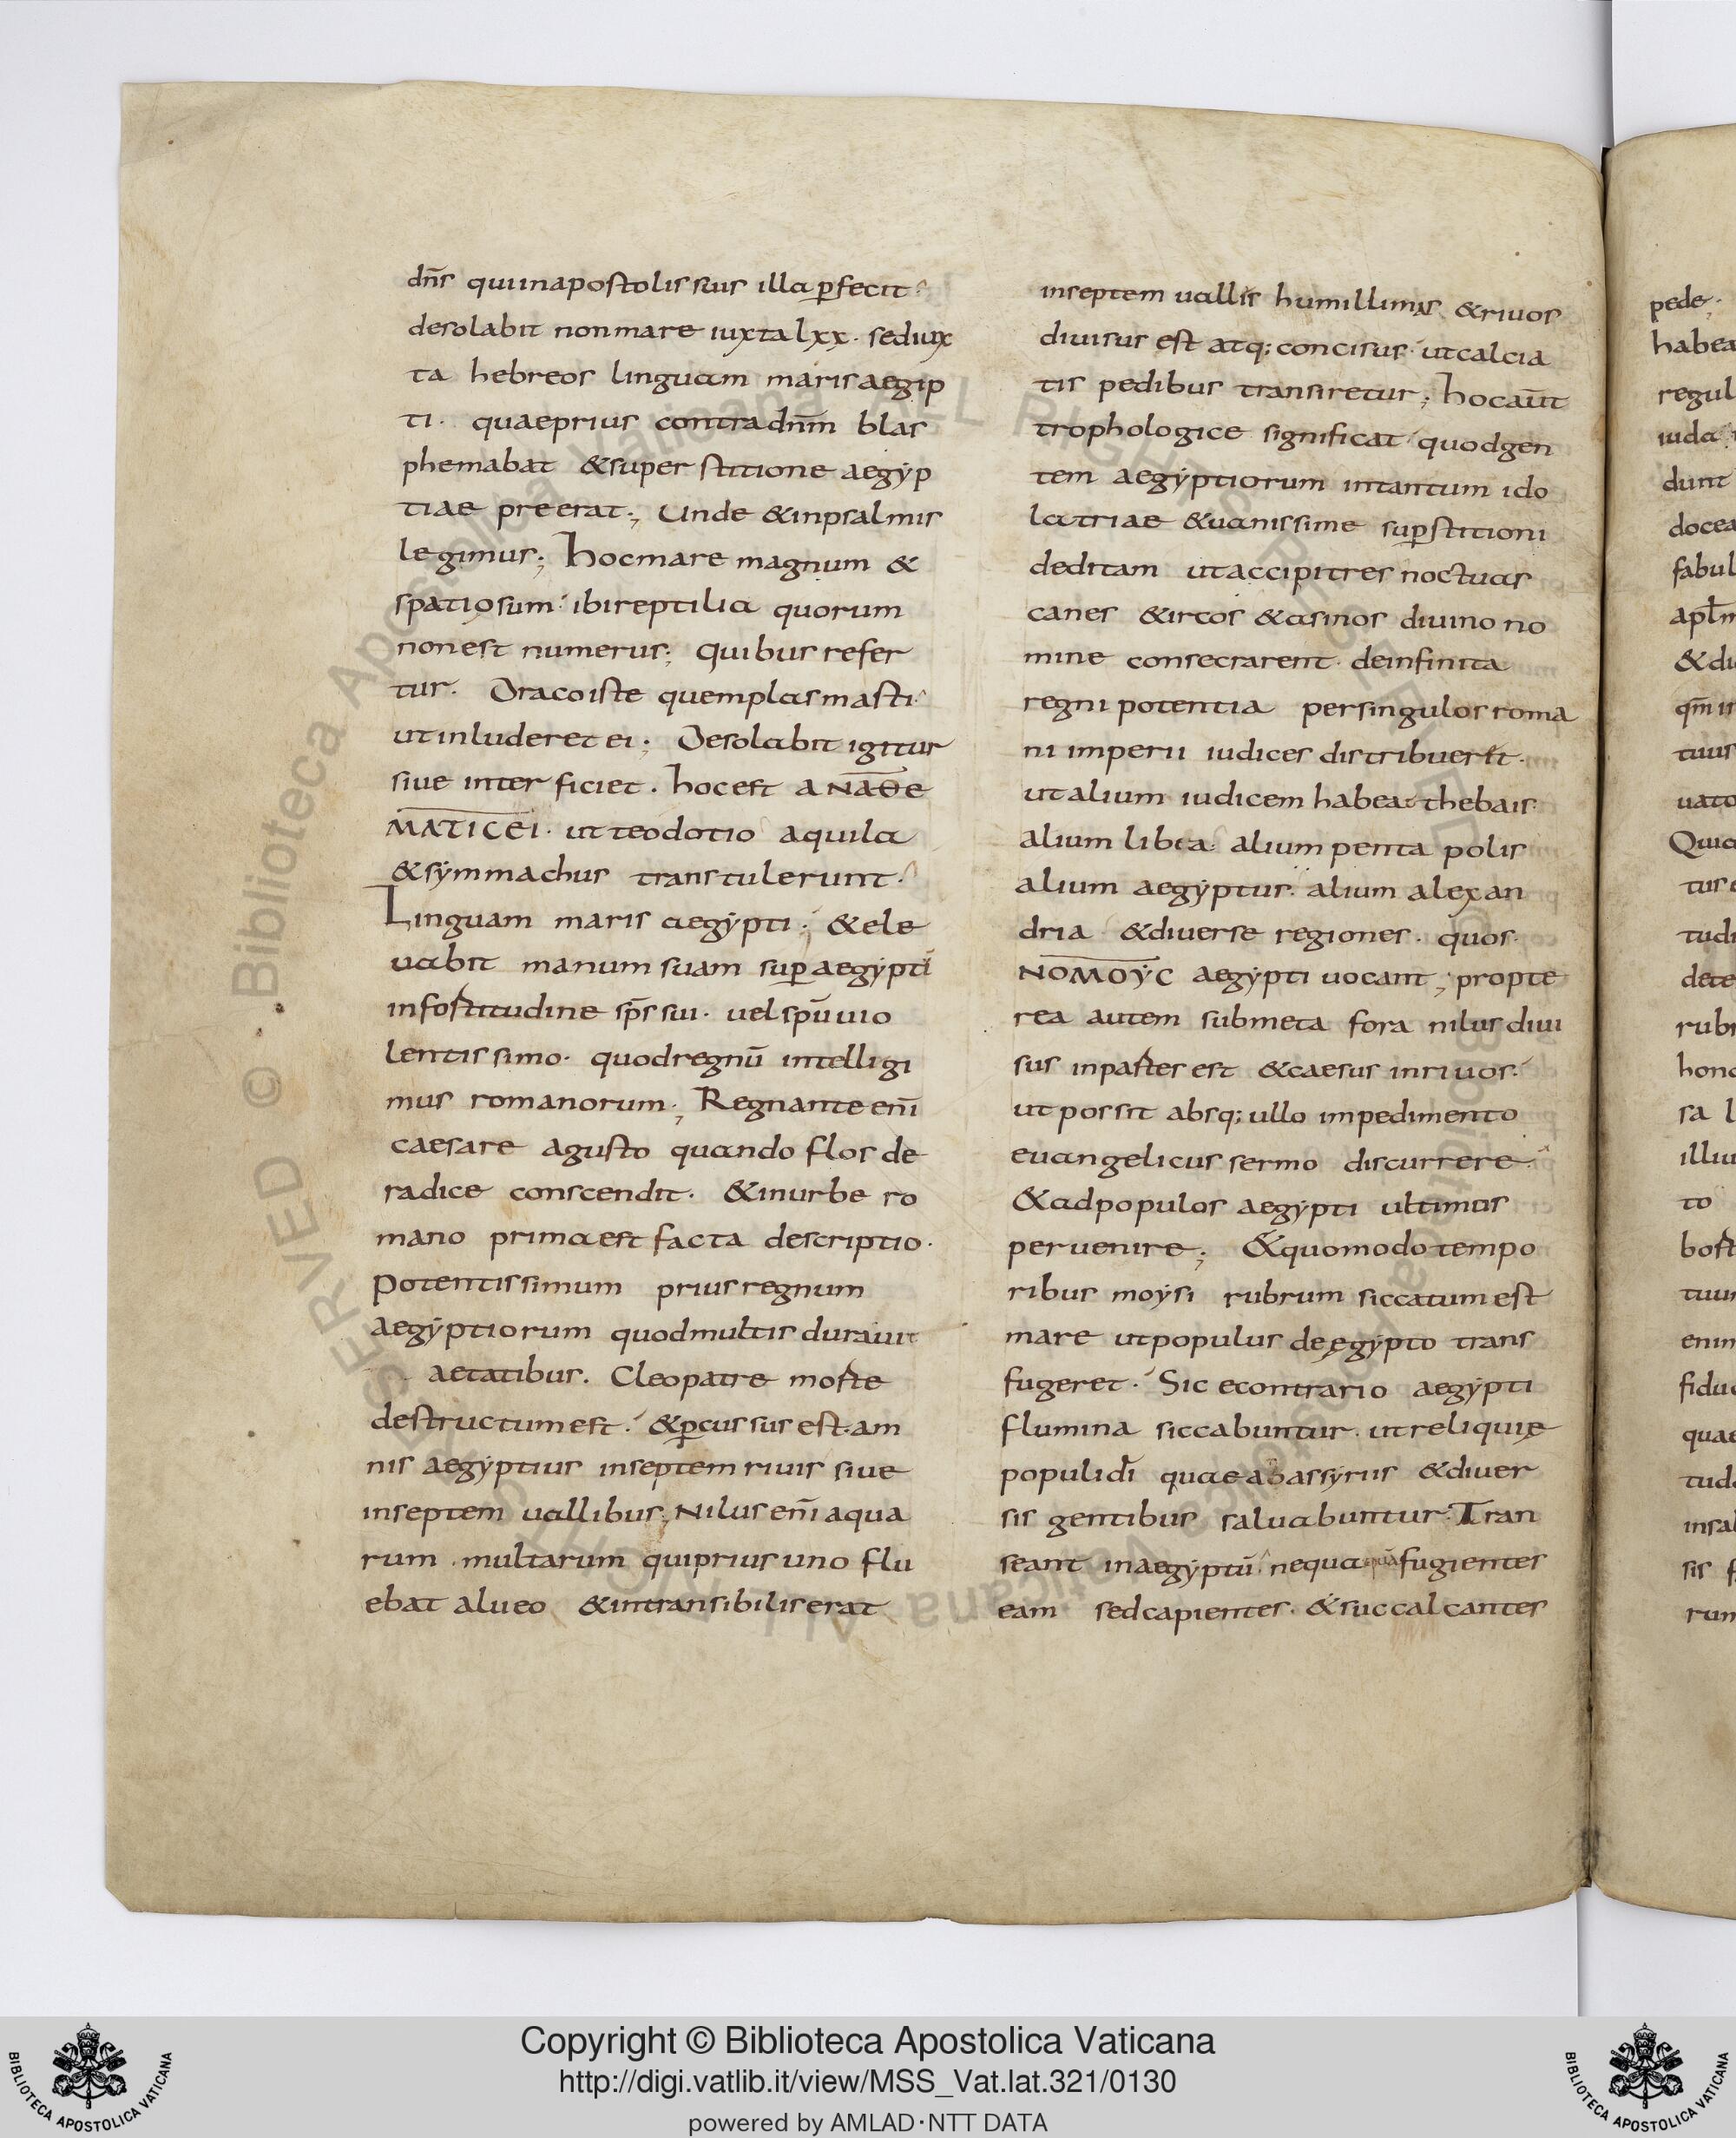 dn̄s qui inapostolis suis illa ꝑfecit.
desolabit non mare iuxta lxx. sed iux
ta hebreos linguam maris aegip
ti. quae prius contra dn̄m blas
phemabat & super stitione aegẏp
tiae preerat; Unde & inpsalmis
legimus; hoc mare magnum &
spatiosum. ibi reptilia quorum
non est numerus; quibus refer
tur. Draco iste quem plasmasti.
ut inluderet ei; Desolabit igitur
siue inter ficiet. hoc est ANAΘE
MATICEI. ut teodotio aquila
& sẏmmachus trans tulerunt.
Linguam maris aegẏpti; & ele
uabit manum suam suꝑ aegẏpti
in fortitudine sp̄s sui. uel spū uio
lentissimo. quod regnū intelligi
mus romanorum; Regnante eni̅
caesare agusto quando flos de
radice conscendit. & inurbe ro
mano prima est facta descriptio.
potentissimum prius regnum
aegẏptiorum quod multis durauit
aetatibus. Cleopatre morte
destructum est. & ꝑcussus est. am
nis aegẏptius inseptem riuis siue
inseptem uallibus; Nilus eni̅ aqua
rum multarum qui prius uno flu
ebat alueo & intransibilis erat
inseptem uallis humillimis & riuos
diuisus est atq; concisus. ut calcia
tis pedibus transiretur; hoc aūt
trophologice significat quod gen
tem aegẏptiorum intantum ido
latriae & uanissime suꝑstitioni
deditam ut accipitres noctuas
canes & ircos & asinos diuino no
mine consecrarent. de infinita
regni potentia per singulos roma
ni imperii iudices distribuerit.
ut alium iudicem habeat thebais
alium libia. alium penta polis
alium aegẏptus. alium alexan
dria & diuerse regiones. quos
NOMOẎC aegẏpti uocant; propte
rea autem submeta fora nilus diui
sus inpartes est & caesus inriuos.
ut possit absq; ullo impedimento
euangelicus sermo discurrere.
& ad populos aegẏpti ultimos
peruenire; & quomodo tempo
ribus moẏsi rubrum siccatum est
mare ut populus de ęgẏpto trans
fugeret. Sic econtrario aegẏpti
flumina siccabuntur. ut reliquię
populi di̅ quae ab assẏriis & diuer
sis gentibus saluabuntur. Tran
seant inaegẏptū nequa quā fugientes
eam sed capientes. & succalcantes
pede.
habea
regul
iuda
dunt
docea
fabul
apl̄m
& di
qm̄ in
tuus
uato
Quia
tus
tudi
dete
rubr
hono
sa l
illiu
to
bost
tuur
enim
fiduc
quae
tuda
insal
sis f
rum
© Biblioteca Apostolica Vaticana ALL RIGHTS RESERVED
Copyright © Biblioteca Apostolica Vaticana
http://digi.vatlib.it/view/MSS_Vat.lat.321/0130
powered by AMLAD·NTT DATA
BIBLIOTECA APOSTOLICA VATICANA
BIBLIOTECA APOSTOLICA VATICANA